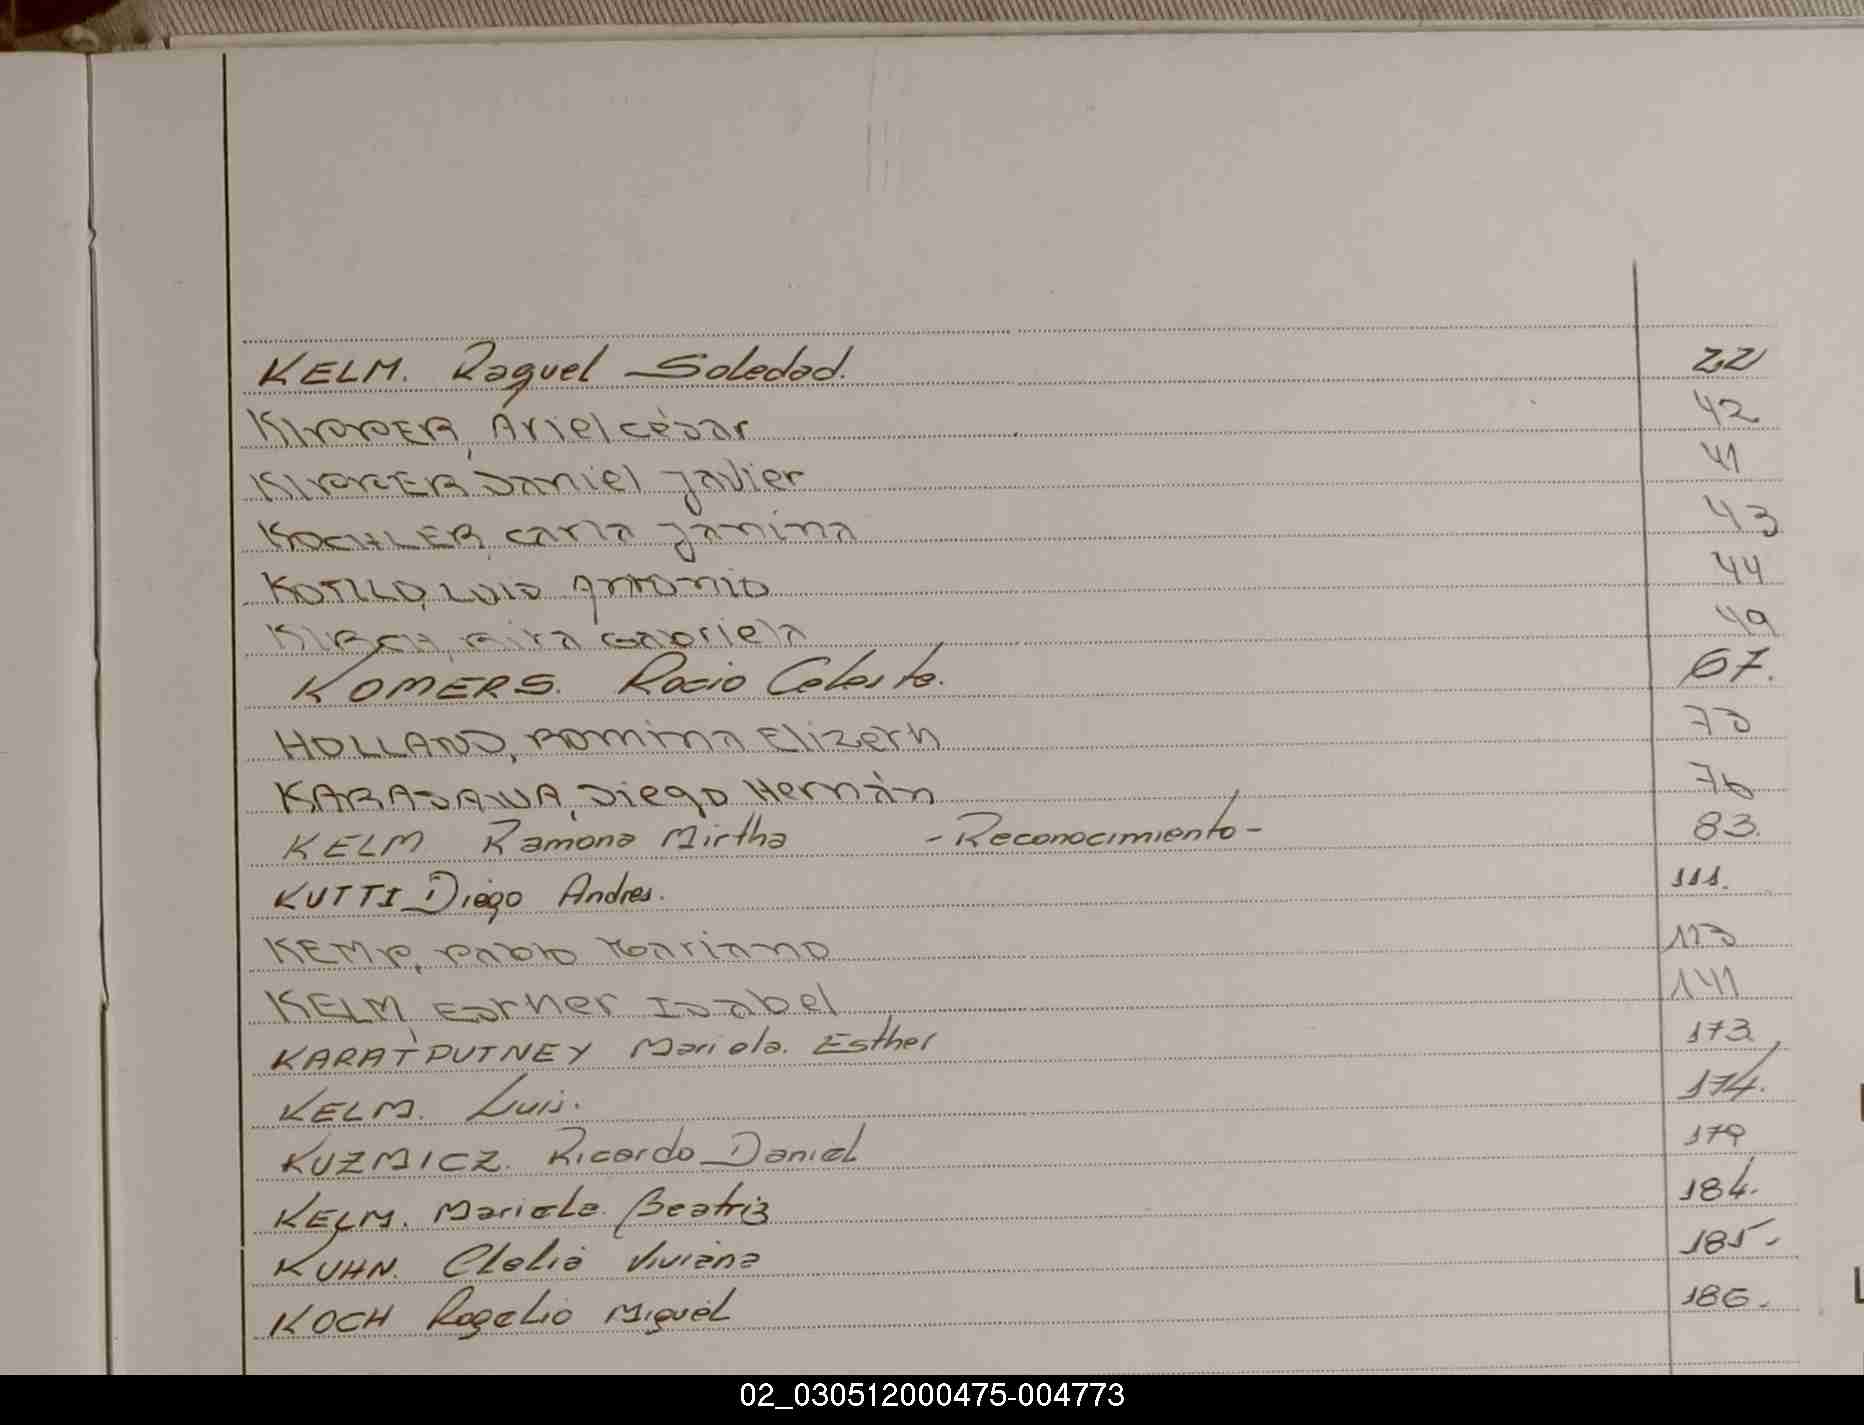 KELM. Raquel Soledad. 22
KIPPER, Ariel césar 42
KIPPER Daniel Javier 41
KOCHLER, carla Janina 43
KOTILO, LUIS Antonio 44
KIRSCH, Gabriela 49
KOMERS. Rocio Celeste. 67.
HOLLAND, Romina Elizeth 73
KARASAWA, Diego Hernán 76
KELM Ramona Mirtha - Reconocimiento - 83.
KUTTI Diego Andres. 111.
KEMP, Pablo Mariano 113
KELM, Esther Isabel 141
KARATPUTNEY Mariela. Esther 173.
KELM. Luis. 174.
KUZMICZ. Ricardo Daniel 179
KELM. Mariela Beatriz 184.
KUHN. Clelia Viviana 185.
KOCH Rogelio Miguel 186.
02_030512000475-004773